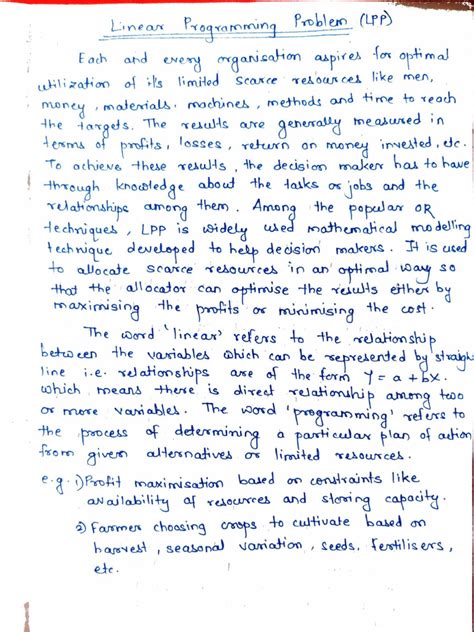 Linear Programming Problem (LPP)
Each and every organisation aspires for optimal
utilization of it's limited scarce resources like men,
money, materials, machines, methods and time to reach
the targets. The results are generally measured in
terms of profits, losses, return on money invested, etc.
To achieve these results, the decision maker has to have
through knowledge about the tasks or jobs and the
relationships among them. Among the popular OR
techniques, LPP is widely used mathematical modelling
technique developed to help decision makers. It is used
to allocate scarce resources in an optimal way so
that the allocator can optimise the results either by
maximising the profits or minimising the cost.
The word 'linear' refers to the relationship
between the variables which can be represented by straight
line i.e. relationships are of the form Y = a + bX.
which means there is direct relationship among two
or more variables. The word 'programming' refers to
the process of determining a particular plan of action
from given alternatives or limited resources.
e.g. 1) Profit maximisation based on constraints like
availability of resources and storing capacity.
2) Farmer choosing crops to cultivate based on
harvest, seasonal variation, seeds, fertilisers,
etc.